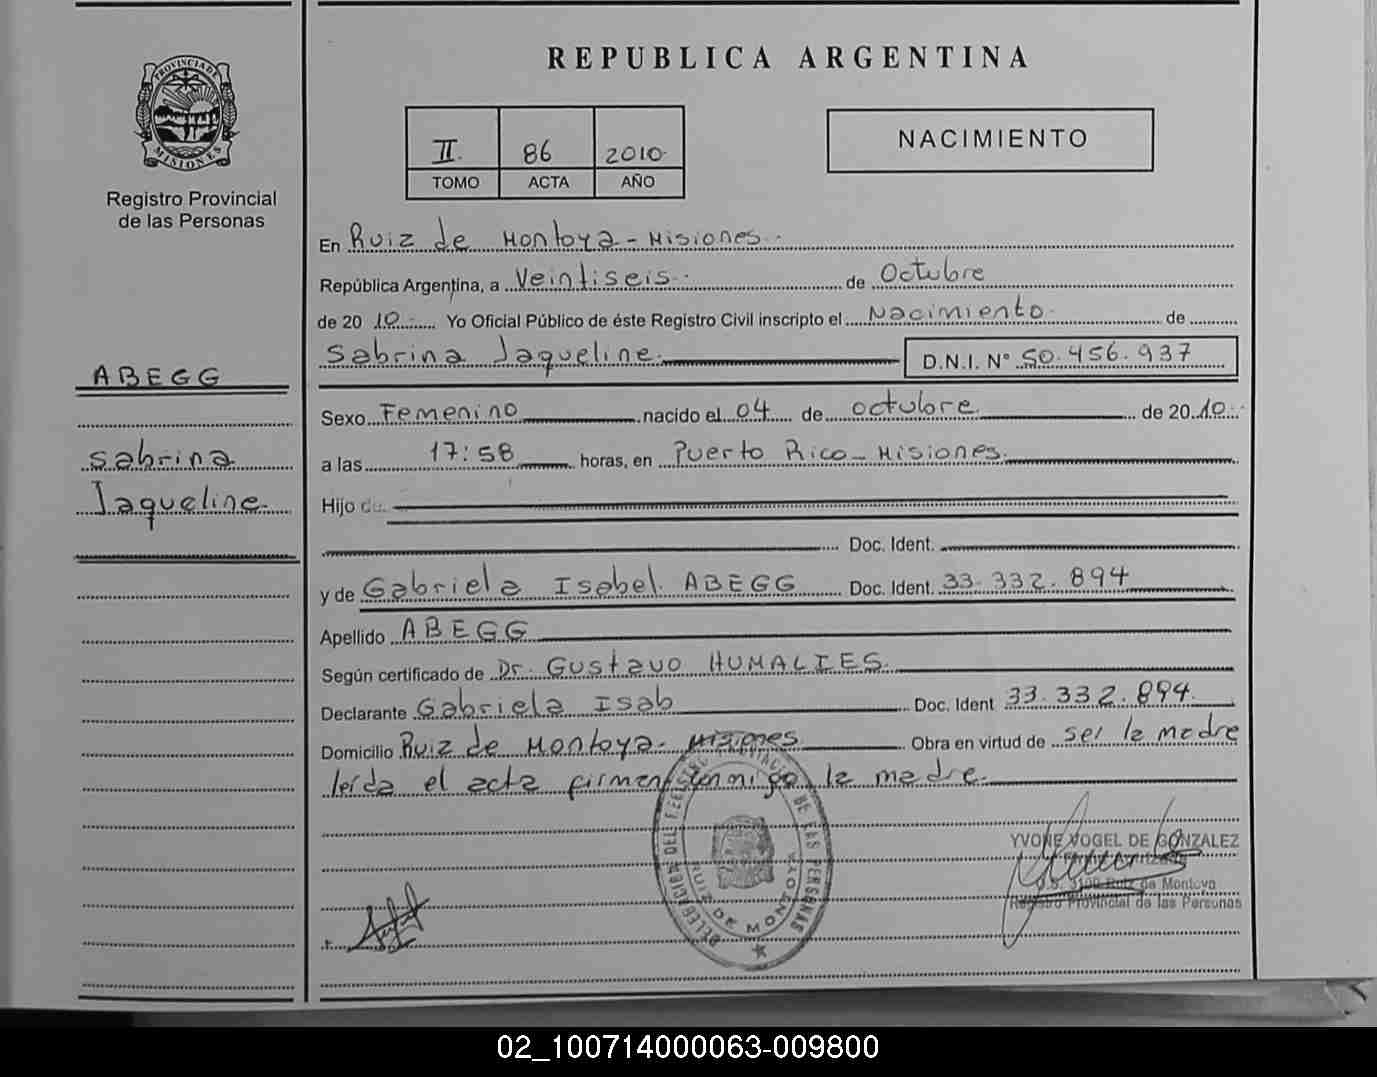 REPUBLICA ARGENTINA
PROVINCIA DE MISIONES
Registro Provincial
de las Personas
II 86 2010
TOMO ACTA AÑO
NACIMIENTO
En Ruiz de Montoya - Misiones.
República Argentina, a Veintiseis. de Octubre
de 20 10. Yo Oficial Público de éste Registro Civil inscripto el Nacimiento de
Sabrina Jaqueline. D.N.I. N° 50.456.937
ABEGG
Sabrina
Jaqueline.
Sexo Femenino nacido el 04 de octubre de 20 10.
a las 17:58 horas, en Puerto Rico - Misiones.
Hijo de
Doc. Ident.
y de Gabriela Isabel. ABEGG Doc. Ident. 33.332.894
Apellido ABEGG
Según certificado de Dr. Gustavo HUMALIES.
Declarante Gabriela Isab Doc. Ident 33.332.894.
Domicilio Ruiz de Montoya - Misiones Obra en virtud de ser la madre
leída el acta firman conmigo la madre.
DELEGACION DEL REGISTRO PROVINCIAL DE LAS PERSONAS
RUIZ DE MONTOYA
YVONE VOGEL DE GONZALEZ
Ruiz de Montoya
Registro Provincial de las Personas
02_100714000063-009800